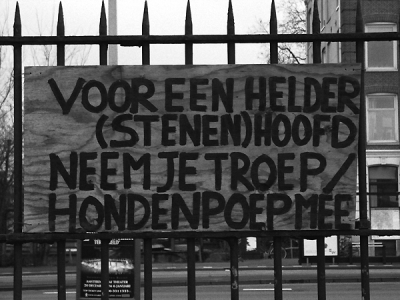 VOOR EEN HELDER
(STENEN) HOOFD
NEEM JE TROEP /
HONDENPOEP MEE